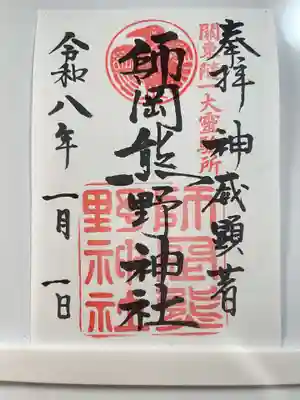 奉拝 神威顕著
関東随一大霊験所
師岡熊野神社
師岡熊野神社
令和八年 一月 一日